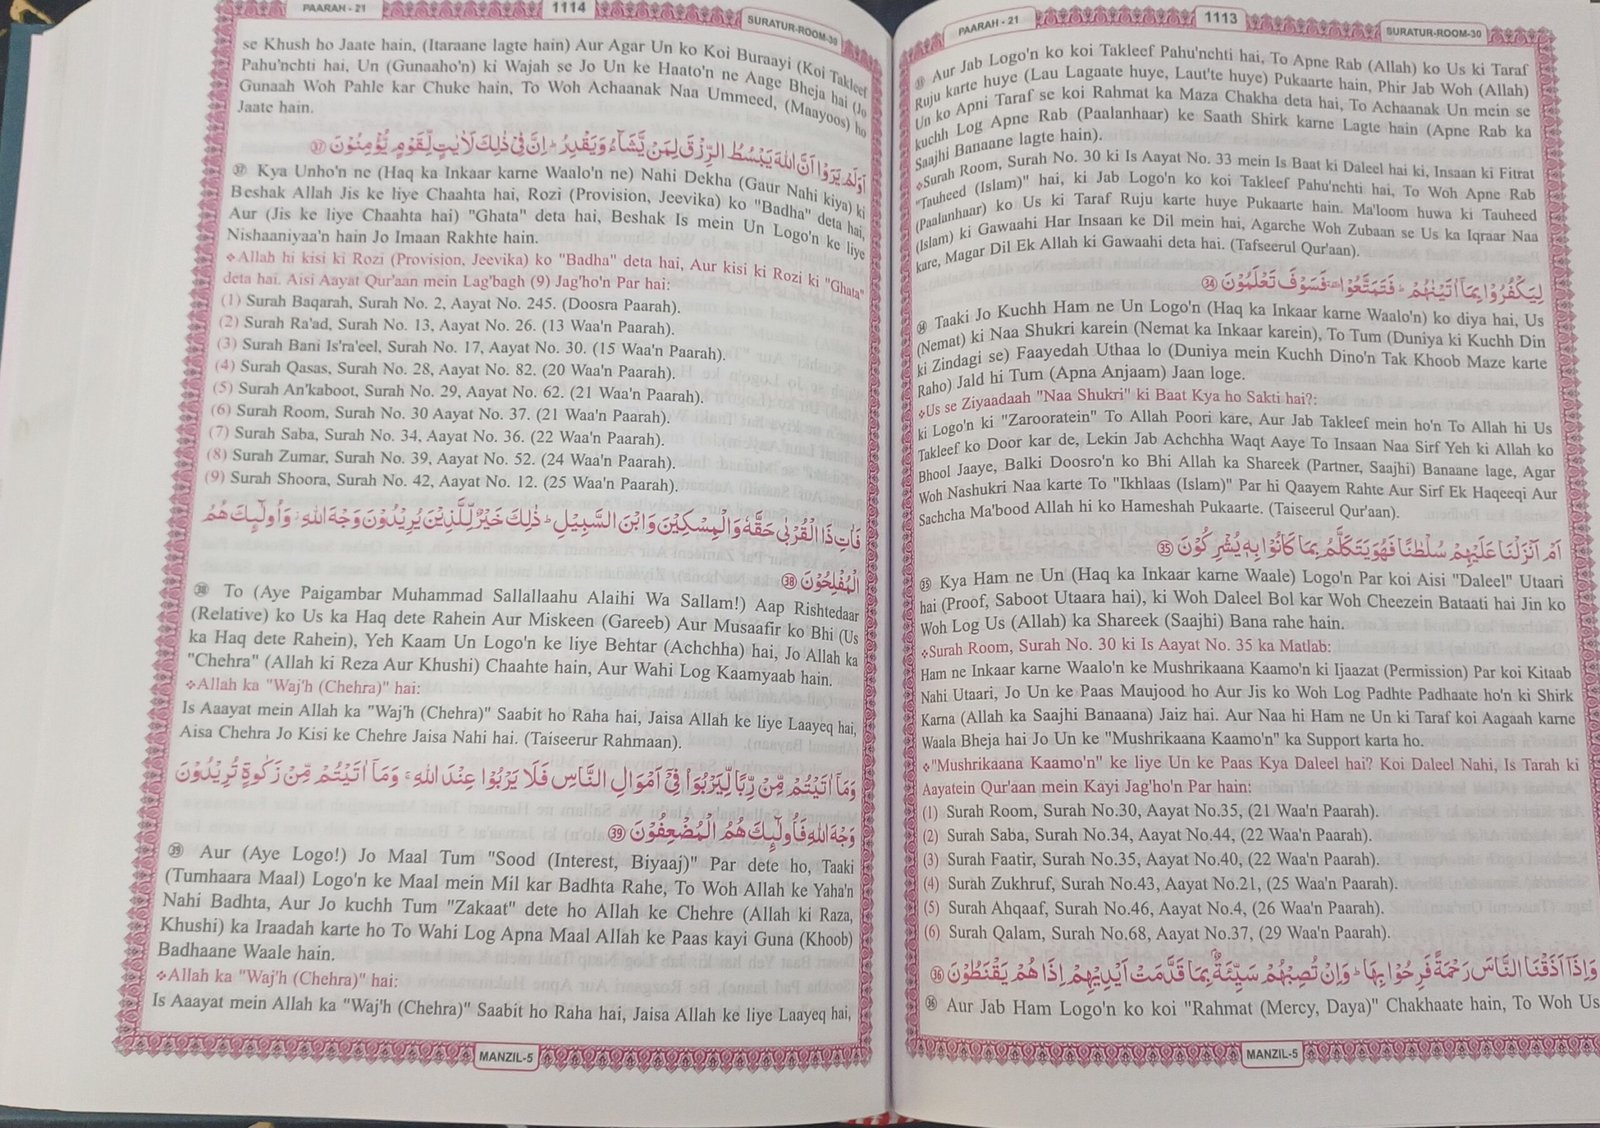 PAARAH - 21
1113
SURATUR-ROOM-30
㉝ Aur Jab Logo'n ko koi Takleef Pahu'nchti hai, To Apne Rab (Allah) ko Us ki Taraf
Ruju karte huye (Lau Lagaate huye, Laut'te huye) Pukaarte hain, Phir Jab Woh (Allah)
Un ko Apni Taraf se koi Rahmat ka Maza Chakha deta hai, To Achaanak Un mein se
kuchh Log Apne Rab (Paalanhaar) ke Saath Shirk karne Lagte hain (Apne Rab ka
Saajhi Banaane lagte hain).
❖Surah Room, Surah No. 30 ki Is Aayat No. 33 mein Is Baat ki Daleel hai ki, Insaan ki Fitrat
"Tauheed (Islam)" hai, ki Jab Logo'n ko koi Takleef Pahu'nchti hai, To Woh Apne Rab
(Paalanhaar) ko Us ki Taraf Ruju karte huye Pukaarte hain. Ma'loom huwa ki Tauheed
(Islam) ki Gawaahi Har Insaan ke Dil mein hai, Agarche Woh Zubaan se Us ka Iqraar Naa
kare, Magar Dil Ek Allah ki Gawaahi deta hai. (Tafseerul Qur'aan).
لِيَكْفُرُوْا بِمَاۤ اٰتَيْنٰهُمْ ؕ فَتَمَتَّعُوْا ۥ فَسَوْفَ تَعْلَمُوْنَ ㉞
㉞ Taaki Jo Kuchh Ham ne Un Logo'n (Haq ka Inkaar karne Waalo'n) ko diya hai, Us
(Nemat) ki Naa Shukri karein (Nemat ka Inkaar karein), To Tum (Duniya ki Kuchh Din
ki Zindagi se) Faayedah Uthaa lo (Duniya mein Kuchh Dino'n Tak Khoob Maze karte
Raho) Jald hi Tum (Apna Anjaam) Jaan loge.
❖Us se Ziyaadaah "Naa Shukri" ki Baat Kya ho Sakti hai?:
ki Logo'n ki "Zarooratein" To Allah Poori kare, Aur Jab Takleef mein ho'n To Allah hi Us
Takleef ko Door kar de, Lekin Jab Achchha Waqt Aaye To Insaan Naa Sirf Yeh ki Allah ko
Bhool Jaaye, Balki Doosro'n ko Bhi Allah ka Shareek (Partner, Saajhi) Banaane lage, Agar
Woh Nashukri Naa karte To "Ikhlaas (Islam)" Par hi Qaayem Rahte Aur Sirf Ek Haqeeqi Aur
Sachcha Ma'bood Allah hi ko Hameshah Pukaarte. (Taiseerul Qur'aan).
اَمْ اَنْزَلْنَا عَلَيْهِمْ سُلْطٰنًا فَهُوَ يَتَكَلَّمُ بِمَا كَانُوْا بِهٖ يُشْرِكُوْنَ ㉟
㉟ Kya Ham ne Un (Haq ka Inkaar karne Waale) Logo'n Par koi Aisi "Daleel" Utaari
hai (Proof, Saboot Utaara hai), ki Woh Daleel Bol kar Woh Cheezein Bataati hai Jin ko
Woh Log Us (Allah) ka Shareek (Saajhi) Bana rahe hain.
❖Surah Room, Surah No. 30 ki Is Aayat No. 35 ka Matlab:
Ham ne Inkaar karne Waalo'n ke Mushrikaana Kaamo'n ki Ijaazat (Permission) Par koi Kitaab
Nahi Utaari, Jo Un ke Paas Maujood ho Aur Jis ko Woh Log Padhte Padhaate ho'n ki Shirk
Karna (Allah ka Saajhi Banaana) Jaiz hai. Aur Naa hi Ham ne Un ki Taraf koi Aagaah karne
Waala Bheja hai Jo Un ke "Mushrikaana Kaamo'n" ka Support karta ho.
❖"Mushrikaana Kaamo'n" ke liye Un ke Paas Kya Daleel hai? Koi Daleel Nahi, Is Tarah ki
Aayatein Qur'aan mein Kayi Jag'ho'n Par hain:
(1) Surah Room, Surah No.30, Aayat No.35, (21 Waa'n Paarah).
(2) Surah Saba, Surah No.34, Aayat No.44, (22 Waa'n Paarah).
(3) Surah Faatir, Surah No.35, Aayat No.40, (22 Waa'n Paarah).
(4) Surah Zukhruf, Surah No.43, Aayat No.21, (25 Waa'n Paarah).
(5) Surah Ahqaaf, Surah No.46, Aayat No.4, (26 Waa'n Paarah).
(6) Surah Qalam, Surah No.68, Aayat No.37, (29 Waa'n Paarah).
وَاِذَاۤ اَذَقْنَا النَّاسَ رَحْمَةً فَرِحُوْا بِهَا ؕ وَاِنْ تُصِبْهُمْ سَيِّئَةٌۢ بِمَا قَدَّمَتْ اَيْدِيْهِمْ اِذَا هُمْ يَقْنَطُوْنَ ㊱
㊱ Aur Jab Ham Logo'n ko koi "Rahmat (Mercy, Daya)" Chakhaate hain, To Woh Us
MANZIL-5
PAARAH - 21
1114
SURATUR-ROOM-30
se Khush ho Jaate hain, (Itaraane lagte hain) Aur Agar Un ko Koi Buraayi (Koi Takleef
Pahu'nchti hai, Un (Gunaaho'n) ki Wajah se Jo Un ke Haato'n ne Aage Bheja hai (Jo
Gunaah Woh Pahle kar Chuke hain, To Woh Achaanak Naa Ummeed, (Maayoos) ho
Jaate hain.
اَوَلَمْ يَرَوْا اَنَّ اللّٰهَ يَبْسُطُ الرِّزْقَ لِمَنْ يَّشَآءُ وَيَقْدِرُ ؕ اِنَّ فِىْ ذٰلِكَ لَاٰيٰتٍ لِّقَوْمٍ يُّؤْمِنُوْنَ ㊲
㊲ Kya Unho'n ne (Haq ka Inkaar karne Waalo'n ne) Nahi Dekha (Gaur Nahi kiya) ki
Beshak Allah Jis ke liye Chaahta hai, Rozi (Provision, Jeevika) ko "Badha" deta hai,
Aur (Jis ke liye Chaahta hai) "Ghata" deta hai, Beshak Is mein Un Logo'n ke liye
Nishaaniyaa'n hain Jo Imaan Rakhte hain.
❖Allah hi kisi ki Rozi (Provision, Jeevika) ko "Badha" deta hai, Aur kisi ki Rozi ki "Ghata"
deta hai. Aisi Aayat Qur'aan mein Lag'bagh (9) Jag'ho'n Par hai:
(1) Surah Baqarah, Surah No. 2, Aayat No. 245. (Doosra Paarah).
(2) Surah Ra'ad, Surah No. 13, Aayat No. 26. (13 Waa'n Paarah).
(3) Surah Bani Is'ra'eel, Surah No. 17, Aayat No. 30. (15 Waa'n Paarah).
(4) Surah Qasas, Surah No. 28, Aayat No. 82. (20 Waa'n Paarah).
(5) Surah An'kaboot, Surah No. 29, Aayat No. 62. (21 Waa'n Paarah).
(6) Surah Room, Surah No. 30 Aayat No. 37. (21 Waa'n Paarah).
(7) Surah Saba, Surah No. 34, Aayat No. 36. (22 Waa'n Paarah).
(8) Surah Zumar, Surah No. 39, Aayat No. 52. (24 Waa'n Paarah).
(9) Surah Shoora, Surah No. 42, Aayat No. 12. (25 Waa'n Paarah).
فَاٰتِ ذَا الْقُرْبٰى حَقَّهٗ وَالْمِسْكِيْنَ وَابْنَ السَّبِيْلِ ؕ ذٰلِكَ خَيْرٌ لِّلَّذِيْنَ يُرِيْدُوْنَ وَجْهَ اللّٰهِ ۫ وَاُولٰٓئِكَ هُمُ
الْمُفْلِحُوْنَ ㊳
㊳ To (Aye Paigambar Muhammad Sallallaahu Alaihi Wa Sallam!) Aap Rishtedaar
(Relative) ko Us ka Haq dete Rahein Aur Miskeen (Gareeb) Aur Musaafir ko Bhi (Us
ka Haq dete Rahein), Yeh Kaam Un Logo'n ke liye Behtar (Achchha) hai, Jo Allah ka
"Chehra" (Allah ki Reza Aur Khushi) Chaahte hain, Aur Wahi Log Kaamyaab hain.
❖Allah ka "Waj'h (Chehra)" hai:
Is Aaayat mein Allah ka "Waj'h (Chehra)" Saabit ho Raha hai, Jaisa Allah ke liye Laayeq hai,
Aisa Chehra Jo Kisi ke Chehre Jaisa Nahi hai. (Taiseerur Rahmaan).
وَمَاۤ اٰتَيْتُمْ مِّنْ رِّبًا لِّيَرْبُوَا۟ فِىْۤ اَمْوَالِ النَّاسِ فَلَا يَرْبُوْا عِنْدَ اللّٰهِ ۚ وَمَاۤ اٰتَيْتُمْ مِّنْ زَكٰوةٍ تُرِيْدُوْنَ
وَجْهَ اللّٰهِ فَاُولٰٓئِكَ هُمُ الْمُضْعِفُوْنَ ㊴
㊴ Aur (Aye Logo!) Jo Maal Tum "Sood (Interest, Biyaaj)" Par dete ho, Taaki
(Tumhaara Maal) Logo'n ke Maal mein Mil kar Badhta Rahe, To Woh Allah ke Yaha'n
Nahi Badhta, Aur Jo kuchh Tum "Zakaat" dete ho Allah ke Chehre (Allah ki Raza,
Khushi) ka Iraadah karte ho To Wahi Log Apna Maal Allah ke Paas kayi Guna (Khoob)
Badhaane Waale hain.
❖Allah ka "Waj'h (Chehra)" hai:
Is Aaayat mein Allah ka "Waj'h (Chehra)" Saabit ho Raha hai, Jaisa Allah ke liye Laayeq hai,
MANZIL-5